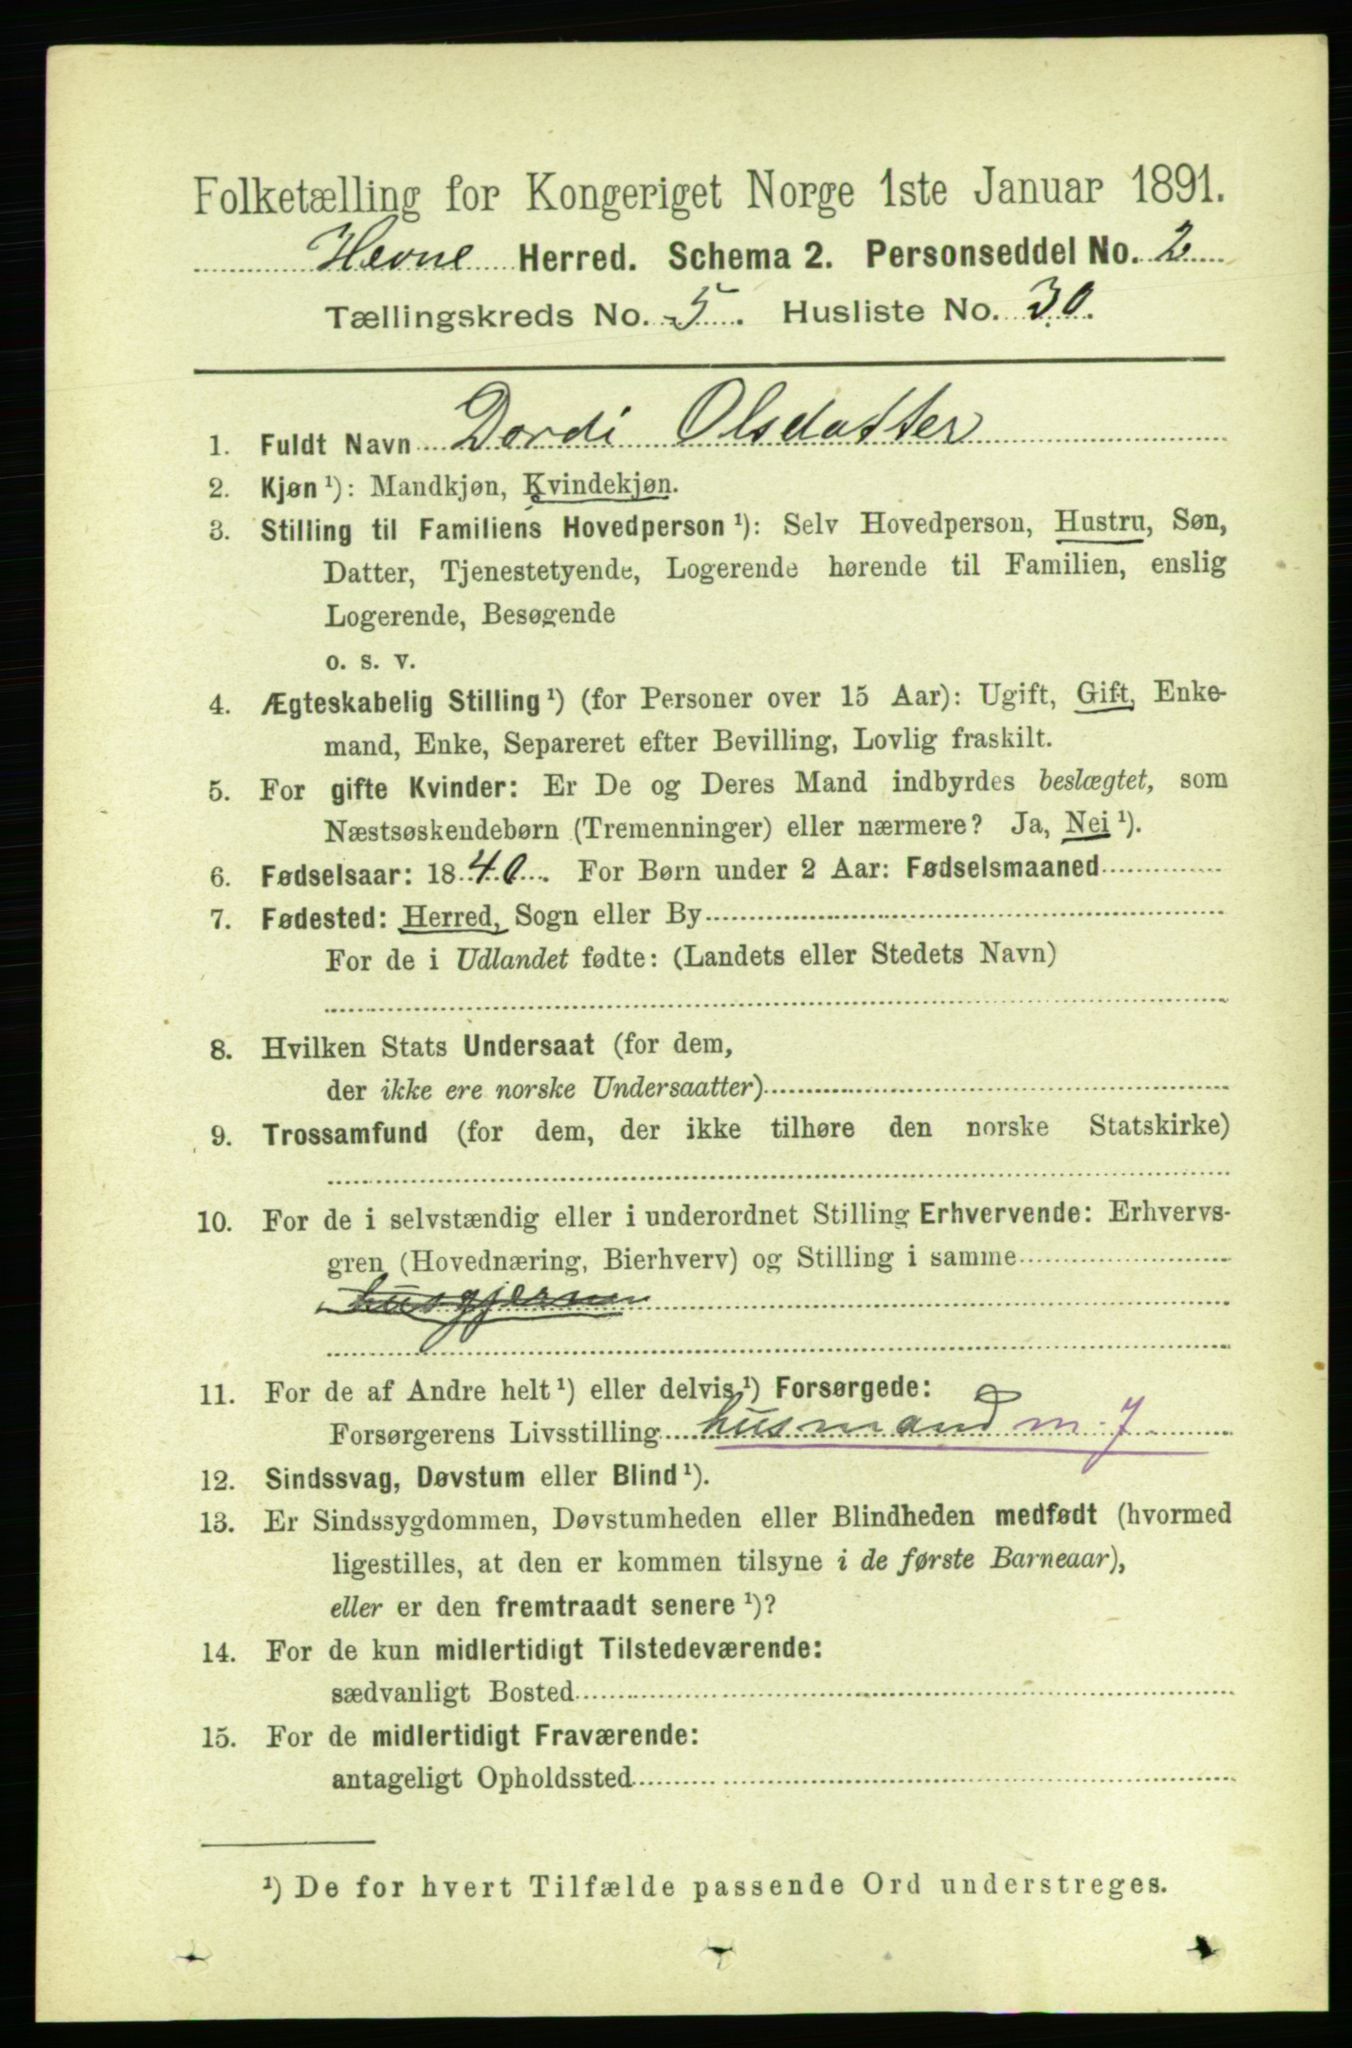 Folketælling for Kongeriget Norge 1ste Januar 1891.
Hevne Herred. Schema 2. Personseddel No. 2
Tællingskreds No. 5. Husliste No. 30.
1. Fuldt Navn Dordi Olsdatter
2. Kjøn ¹): Mandkjøn, Kvindekjøn.
3. Stilling til Familiens Hovedperson ¹): Selv Hovedperson, Hustru, Søn,
Datter, Tjenestetyende, Logerende hørende til Familien, enslig
Logerende, Besøgende
o. s. v.
4. Ægteskabelig Stilling ¹) (for Personer over 15 Aar): Ugift, Gift, Enke-
mand, Enke, Separeret efter Bevilling, Lovlig fraskilt.
5. For gifte Kvinder: Er De og Deres Mand indbyrdes beslægtet, som
Næstsøskendebørn (Tremenninger) eller nærmere? Ja, Nei ¹).
6. Fødselsaar: 1840. For Børn under 2 Aar: Fødselsmaaned
7. Fødested: Herred, Sogn eller By
For de i Udlandet fødte: (Landets eller Stedets Navn)
8. Hvilken Stats Undersaat (for dem,
der ikke ere norske Undersaatter)
9. Trossamfund (for dem, der ikke tilhøre den norske Statskirke)
10. For de i selvstændig eller i underordnet Stilling Erhvervende: Erhvervs-
gren (Hovednæring, Bierhverv) og Stilling i samme
11. For de af Andre helt ¹) eller delvis ¹) Forsørgede:
Forsørgerens Livsstilling husmand m. j
12. Sindssvag, Døvstum eller Blind ¹).
13. Er Sindssygdommen, Døvstumheden eller Blindheden medfødt (hvormed
ligestilles, at den er kommen tilsyne i de første Barneaar),
eller er den fremtraadt senere ¹)?
14. For de kun midlertidigt Tilstedeværende:
sædvanligt Bosted
15. For de midlertidigt Fraværende:
antageligt Opholdssted
¹) De for hvert Tilfælde passende Ord understreges.